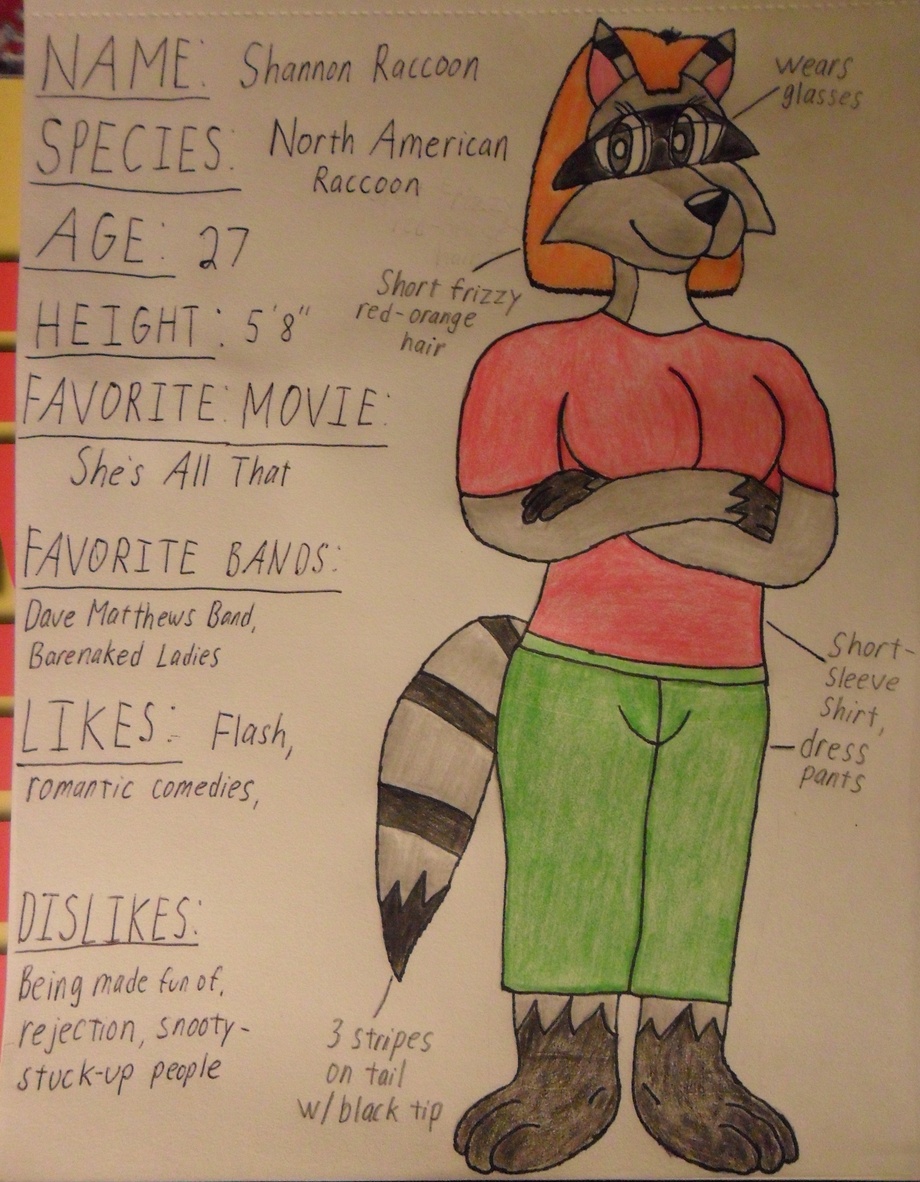 NAME: Shannon Raccoon
wears
glasses
SPECIES: North American
Raccoon
AGE: 27
Short frizzy
red-orange
hair
HEIGHT: 5'8"
FAVORITE: MOVIE:
She's All That
FAVORITE BANDS:
Dave Matthews Band,
Barenaked Ladies
Short-
sleeve
shirt,
dress
pants
LIKES: Flash,
romantic comedies,
DISLIKES:
Being made fun of,
rejection, snooty-
stuck-up people
3 stripes
on tail
w/black tip